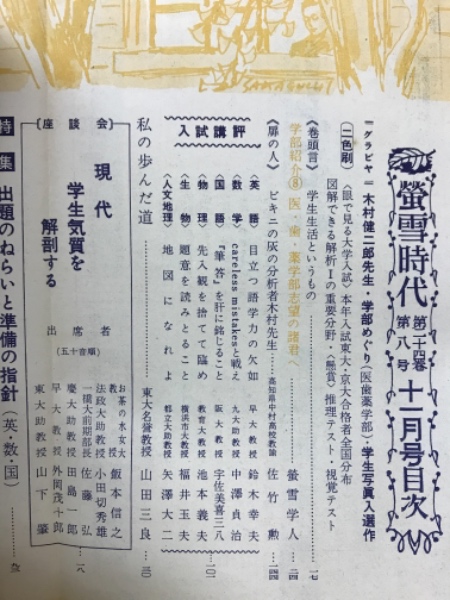 螢雪時代 第二十四巻 第八号 十一月号目次
＝グラビヤ＝木村健二郎先生・学部めぐり(医歯薬学部)・学生写眞入選作
(二色刷)〈眼で見る大学入試〉本年入試東大・京大合格者全国分布
図解できる解析Ⅰの重要分野・〈懸賞〉推理テスト・視覚テスト
《巻頭言》 学生生活というもの 螢雪学人
学部紹介⑧ 医・歯・薬学部志望の諸君へ
《扉の人》 ビキニの灰の分析者木村先生 高知県中村高校教諭 佐竹勲
入試講評
〈英語〉 目立つ語学力の欠如 早大教授 鈴木幸夫
〈数学〉 careless mistakesと戦え 九大助教授 中澤貞治
〈国語〉 『筆答』を肝に銘じること 阪大教授 宇佐美喜三八
〈物理〉 先入観を捨てて臨め 教育大教授 池本義夫
〈生物〉 題意を読みとること 横浜市大教授 福井玉夫
〈人文地理〉 地図になれよ 都立大助教授 矢澤大二
私の歩んだ道 東大名誉教授 山田三良
〔座談会〕
現代学生気質を解剖する
出席者
(五十音順)
お茶の水女大教授 飯本信之
法政大助教授 小田切秀雄
一橋大前期部長 佐藤弘
慶大助教授 田島一郎
早大教授 外岡茂十郎
東大助教授 山下肇
特集 出題のねらいと準備の指針(英・数・国)